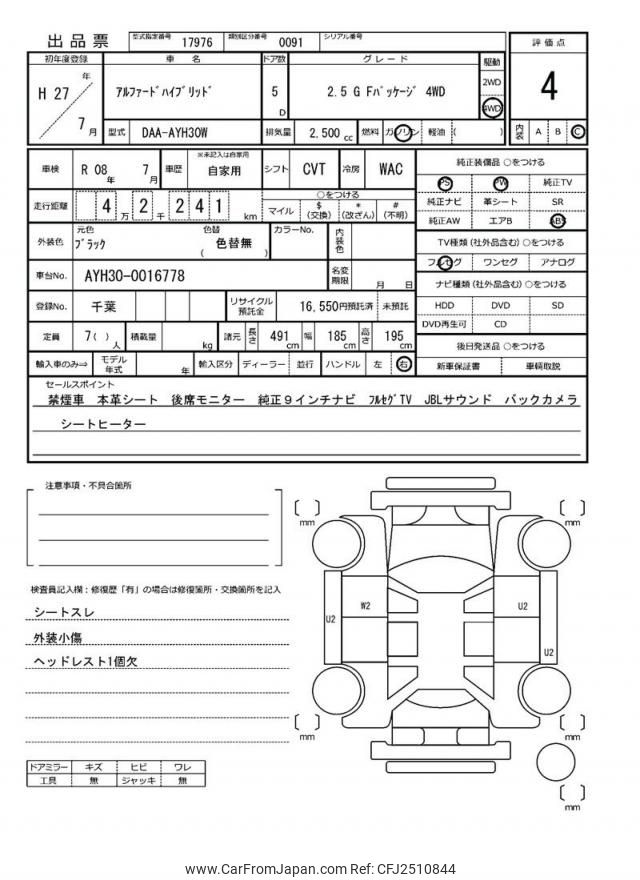 出品票 型式指定番号 17976 類別区分番号 0091 シリアル番号
評価点
4
内装 A B C
初年度登録 車名 ドア数 グレード 駆動
H 27 年 7 月
アルファードハイブリッド 5 D 2.5 G Fパッケージ 4WD
2WD
4WD
型式 DAA-AYH30W 排気量 2,500 cc 燃料 ガソリン 軽油 ( )
車検 R 08 年 7 月 車歴 ※未記入は自家用 自家用 シフト CVT 冷房 WAC
走行距離 4 万 2 千 2 4 1 km
○をつける
マイル $ (交換) * (改ざん) # (不明)
外装色 元色 ブラック 色替 ( 色替無 ) カラーNo. 内装色
車台No. AYH30-0016778 名変期限 月 日
登録No. 千葉 リサイクル預託金 16,550円預託済 未預託
定員 7( ) 人 積載量 kg 諸元 長さ 491 cm 幅 185 cm 高さ 195 cm
輸入車のみ⇨ モデル年式 年 輸入区分 ディーラー 並行 ハンドル 左 右
純正装備品 ○をつける
PS PW 純正TV
純正ナビ 革シート SR
純正AW エアB ABS
TV種類(社外品含む)○をつける
フルセグ ワンセグ アナログ
ナビ種類(社外品含む)○をつける
HDD DVD SD
DVD再生可 CD
後日発送品 ○をつける
新車保証書 車輌取説
セールスポイント
禁煙車 本革シート 後席モニター 純正9インチナビ フルセグTV JBLサウンド バックカメラ
シートヒーター
注意事項・不具合箇所
検査員記入欄:修復歴「有」の場合は修復箇所・交換箇所を記入
シートスレ
外装小傷
ヘッドレスト1個欠
ドアミラー キズ ヒビ ワレ
工具 無 ジャッキ 無
mm
mm
U2
W2
U2
U2
mm
mm
mm
www.CarFromJapan.com Ref: CFJ2510844